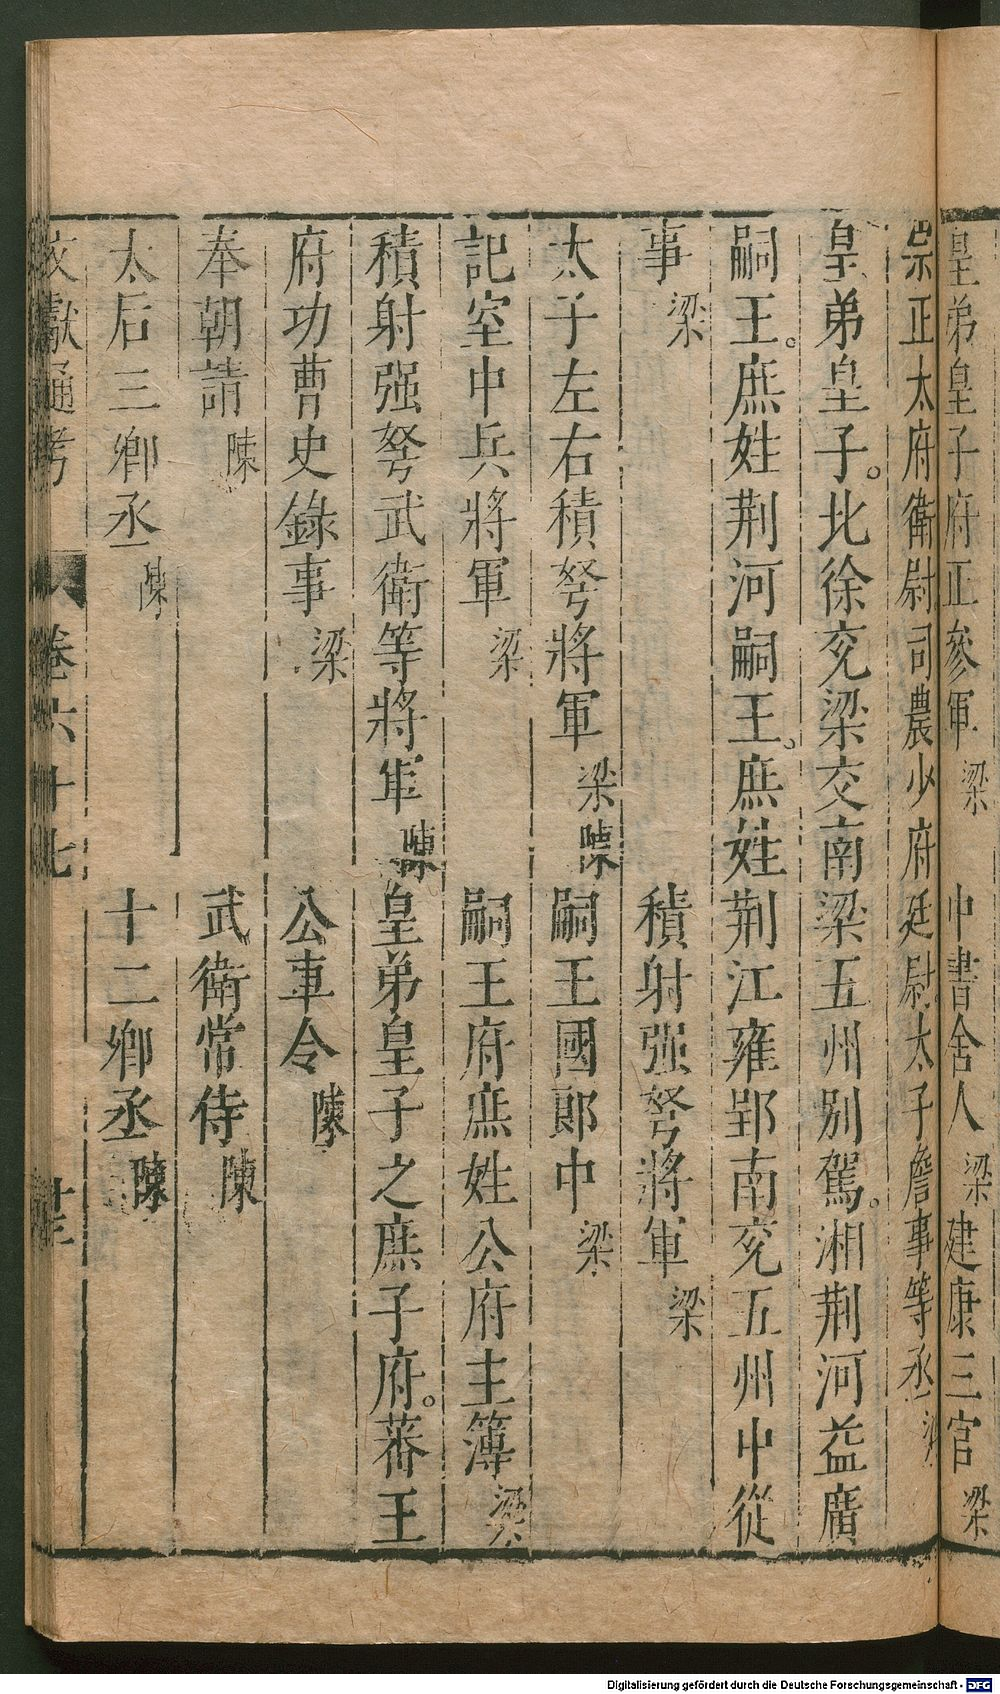 皇弟皇子府正參軍 梁 中書舍人 梁 建康三官 梁
崇正太府衛尉司農少府廷尉太子詹事等丞 梁
皇弟皇子。北徐兖梁交南梁五州別駕。湘荆河益廣
嗣王。庶姓荆河嗣王。庶姓荆江雍郢南兖五州中從
事 梁 積射强弩將軍 梁
太子左右積弩將軍 梁陳 嗣王國郎中 梁
記室中兵將軍 梁 嗣王府庶姓公府主簿 梁
積射强弩武衛等將軍 陳 皇弟皇子之庶子府。蕃王
府功曹史錄事 梁 公車令 陳
奉朝請 陳 武衛常侍 陳
太后三卿丞 陳 十二卿丞 陳
文獻通考 卷六十七
Digitalisierung gefördert durch die Deutsche Forschungsgemeinschaft - DFG